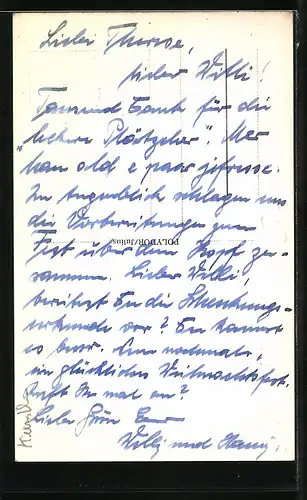 Liebe Therese,
lieber Willi!
Tausend Dank für die
"leckere Plätzcher". Mer
han old e paar jefresse.
Im Augenblick schlagen uns
die Vorbereitungen zum
Fest über dem Kopf zu-
sammen. Lieber Willi,
benötigst Du die Schenkungs-
urkunde vor? Du kannst
es Nun nochmals,
ein glückliches Weihnachtsfest.
Ruft Ihr mal an?
Liebe Grüße Eure
Willy und Hanni.
POLYFOTO